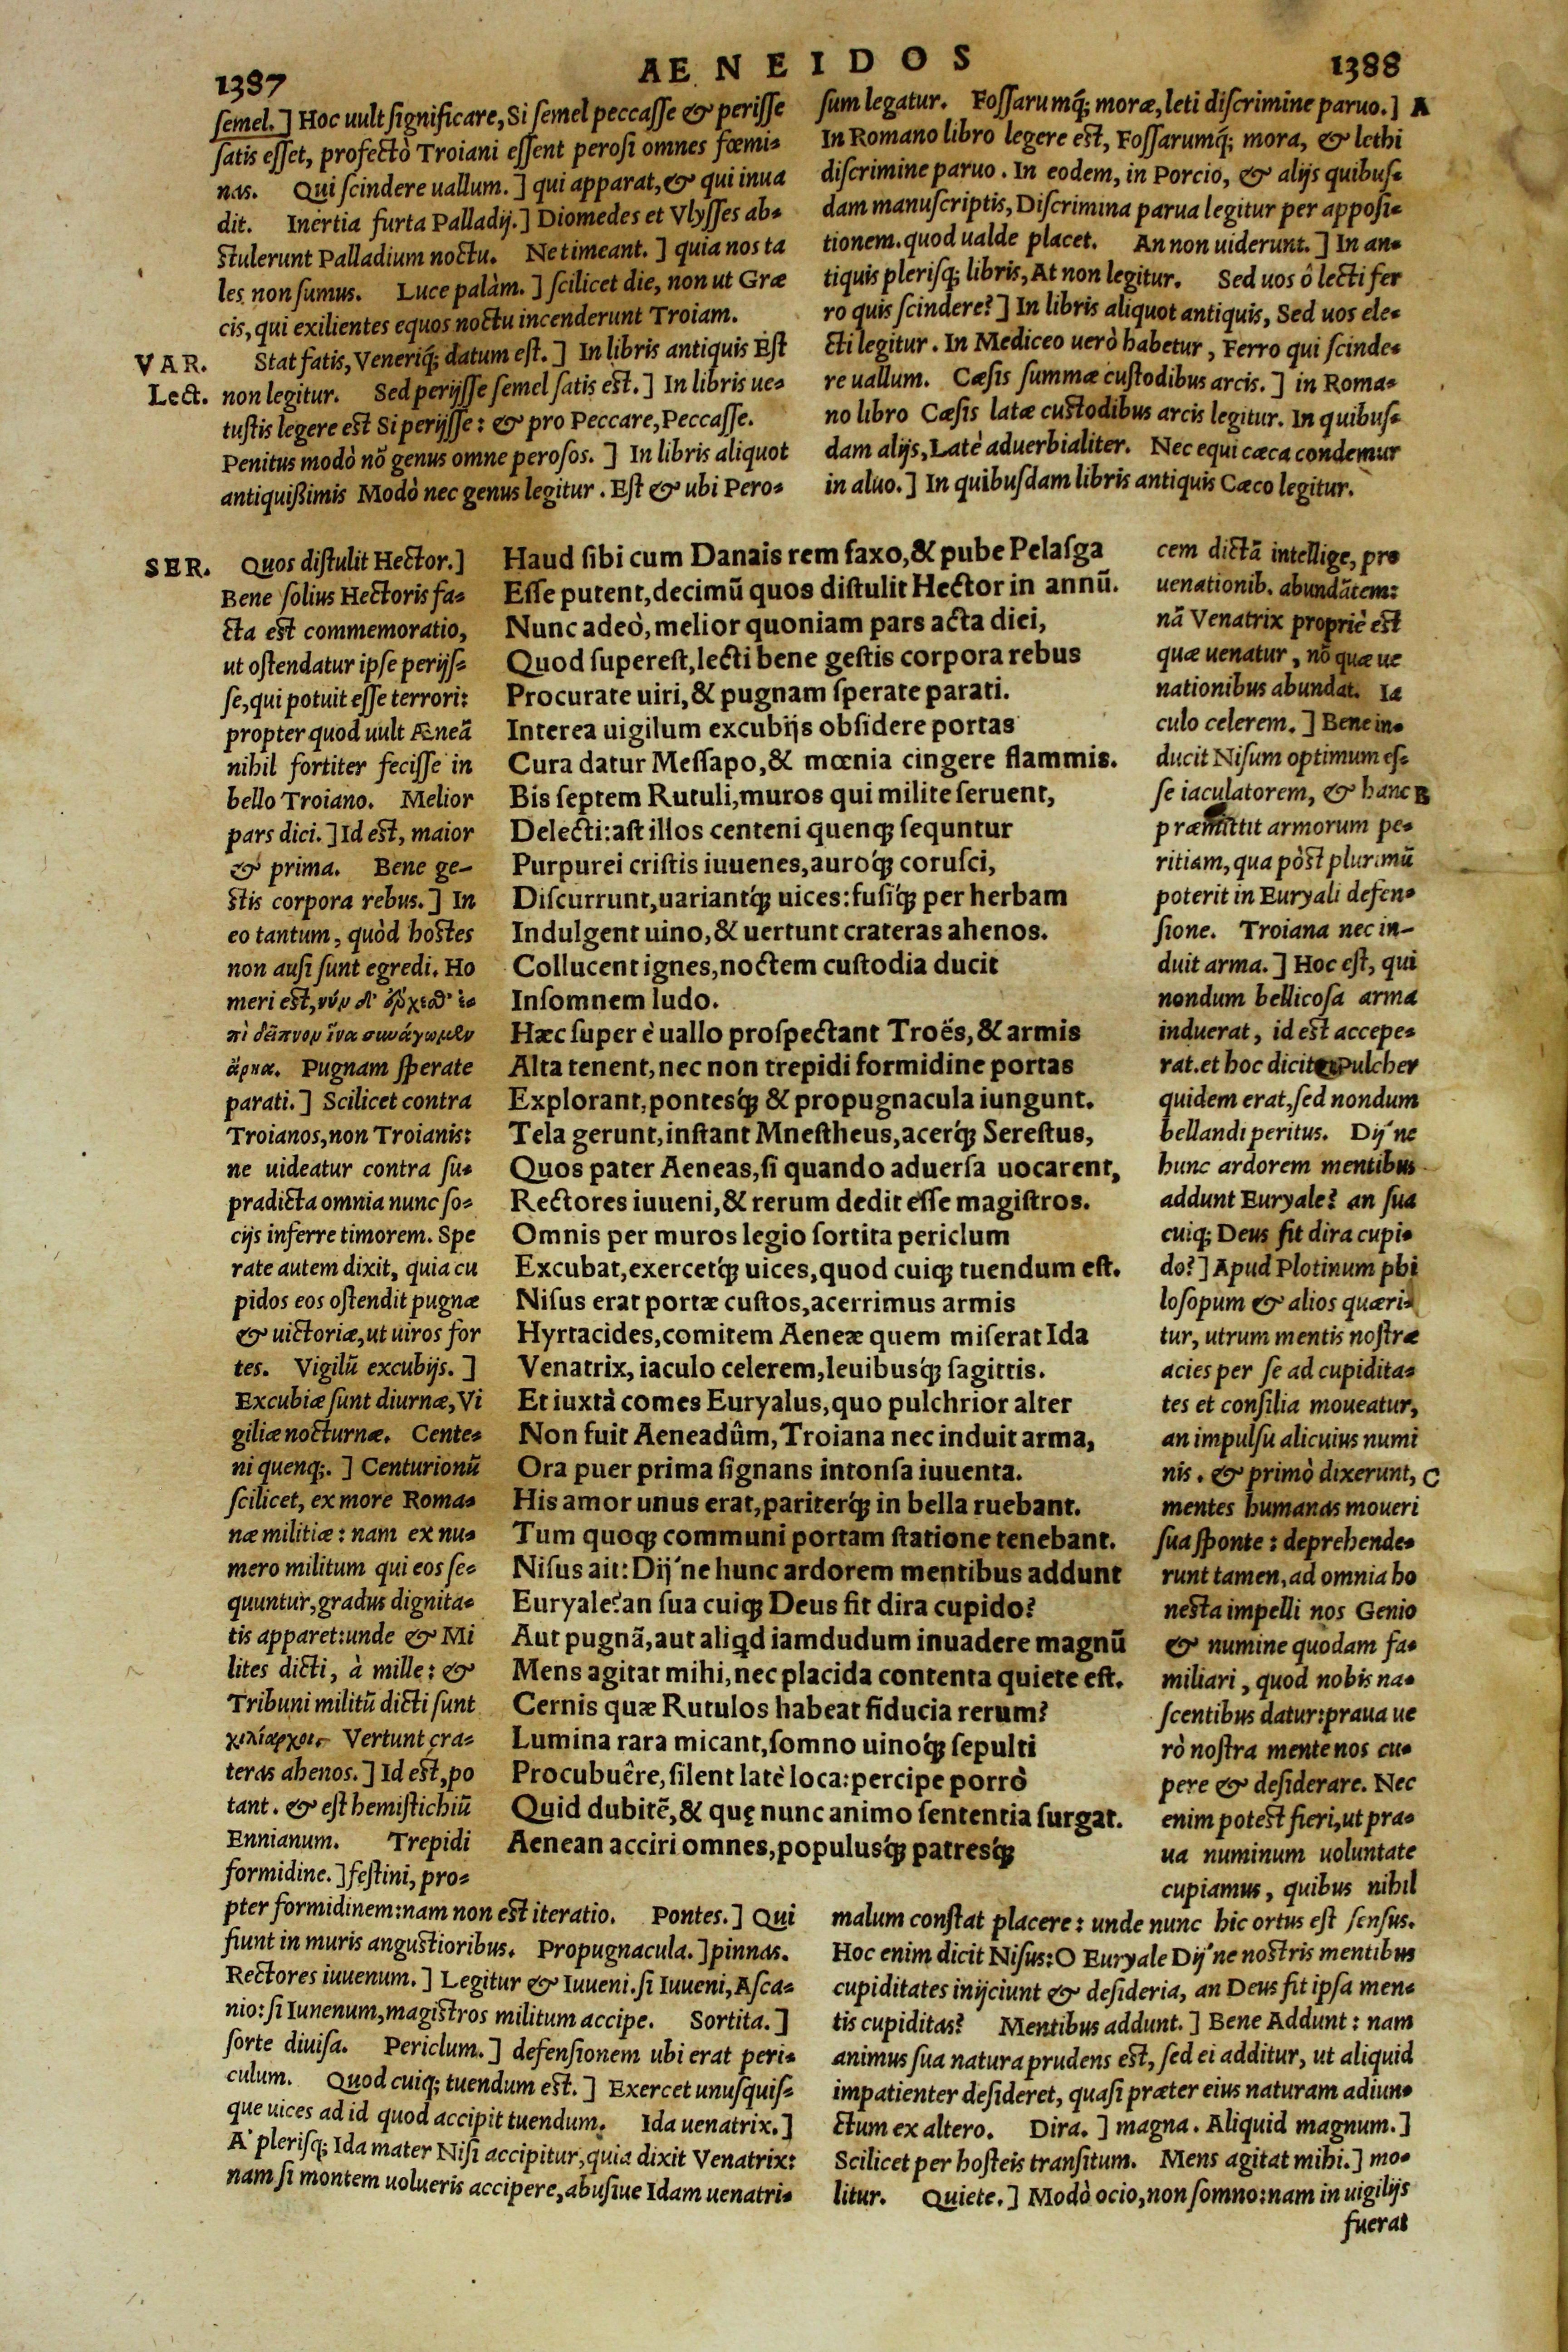 1387
AENEIDOS
1388
semel.] Hoc uult significare, Si semel peccasse & perisse
satis esset, profectò Troiani essent perosi omnes fœmi-
nas. Qui scindere uallum.] qui apparat, & qui inua
dit. Inertia furta Palladij.] Diomedes et Vlysses ab-
stulerunt Palladium noctu. Ne timeant.] quia nos ta
les non sumus. Luce palàm.] scilicet die, non ut Græ
cis, qui exilientes equos noctu incenderunt Troiam.
VAR. Stat fatis, Veneriq́; datum est.] In libris antiquis Est
Lect. non legitur. Sed perijsse semel satis est.] In libris ue-
tustis legere est Si perijsse: & pro Peccare, Peccasse.
Penitus modò nõ genus omne perosos.] In libris aliquot
antiquißimis Modò nec genus legitur. Est & ubi Pero-
sum legatur. Fossarumq́; moræ, leti discrimine paruo.] A
In Romano libro legere est, Fossarumq́; mora, & lethi
discrimine paruo. In eodem, in Porcio, & alijs quibus-
dam manuscriptis, Discrimina parua legitur per apposi-
tionem. quod ualde placet. An non uiderunt.] In an-
tiquis plerisq; libris, At non legitur. Sed uos ô lecti fer
ro quis scindere?] In libris aliquot antiquis, Sed uos ele-
cti legitur. In Mediceo uerò habetur, Ferro qui scinde-
re uallum. Cæsis summæ custodibus arcis.] in Roma-
no libro Cæsis latæ custodibus arcis legitur. In quibus-
dam alijs, Latè aduerbialiter. Nec equi cæca condemur
in aluo.] In quibusdam libris antiquis Cæco legitur.
SER. Quos distulit Hector.]
Bene solius Hectoris fa-
cta est commemoratio,
ut ostendatur ipse perijs-
se, qui potuit esse terrori:
propter quod uult Æneã
nihil fortiter fecisse in
bello Troiano. Melior
pars diei.] Id est, maior
& prima. Bene ge-
stis corpora rebus.] In
eo tantum, quòd hostes
non ausi sunt egredi. Ho
meri est, νύν δ' ἔρχεσθ' ἐ-
πὶ δεῖπνον ἵνα συνάγωμεν
ἄρηα. Pugnam sperate
parati.] Scilicet contra
Troianos, non Troianis:
ne uideatur contra su-
pradicta omnia nunc so-
cijs inferre timorem. Spe
rate autem dixit, quia cu
pidos eos ostendit pugnæ
& uictoriæ, ut uiros for
tes. Vigilũ excubijs.]
Excubiæ sunt diurnæ, Vi
giliæ nocturnæ. Cente-
ni quenq;.] Centurionũ
scilicet, ex more Roma-
næ militiæ: nam ex nu-
mero militum qui eos se-
quuntur, gradus dignita-
tis apparet: unde & Mi
lites dicti, à mille: &
Tribuni militũ dicti sunt
χιλίαρχοι. Vertunt cra-
teras ahenos.] Id est, po
tant. & est hemistichiũ
Ennianum. Trepidi
formidine.] festini, pro-
Haud sibi cum Danais rem faxo, & pube Pelasga
Esse putent, decimũ quos distulit Hector in annũ.
Nunc adeò, melior quoniam pars acta diei,
Quod superest, lecti bene gestis corpora rebus
Procurate uiri, & pugnam sperate parati.
Interea uigilum excubijs obsidere portas
Cura datur Messapo, & mœnia cingere flammis.
Bis septem Rutuli, muros qui milite seruent,
Delecti: ast illos centeni quenq; sequntur
Purpurei cristis iuuenes, auroq́; corusci,
Discurrunt, uariantq́; uices: fusiq́; per herbam
Indulgent uino, & uertunt crateras ahenos.
Collucent ignes, noctem custodia ducit
Insomnem ludo.
Hæc super è uallo prospectant Troës, & armis
Alta tenent, nec non trepidi formidine portas
Explorant, pontesq́; & propugnacula iungunt.
Tela gerunt, instant Mnestheus, acerq́; Serestus,
Quos pater Aeneas, si quando aduersa uocarent,
Rectores iuueni, & rerum dedit esse magistros.
Omnis per muros legio sortita periclum
Excubat, exercetq́; uices, quod cuiq; tuendum est.
Nisus erat portæ custos, acerrimus armis
Hyrtacides, comitem Aeneæ quem miserat Ida
Venatrix, iaculo celerem, leuibusq́; sagittis.
Et iuxtà comes Euryalus, quo pulchrior alter
Non fuit Aeneadûm, Troiana nec induit arma,
Ora puer prima signans intonsa iuuenta.
His amor unus erat, pariterq́; in bella ruebant.
Tum quoq; communi portam statione tenebant.
Nisus ait: Dij'ne hunc ardorem mentibus addunt
Euryale? an sua cuiq; Deus fit dira cupido?
Aut pugnã, aut aliqd iamdudum inuadere magnũ
Mens agitat mihi, nec placida contenta quiete est.
Cernis quæ Rutulos habeat fiducia rerum?
Lumina rara micant, somno uinoq́; sepulti
Procubuêre, silent latè loca: percipe porrò
Quid dubitẽ, & quę nunc animo sententia surgat.
Aenean acciri omnes, populusq́; patresq́;
cem dictã intellige, pro
uenationib. abundãtem:
nã Venatrix propriè est
quæ uenatur, nõ quæ ue
nationibus abundat. Ia
culo celerem.] Bene in-
ducit Nisum optimum es-
se iaculatorem, & hanc B
præmittit armorum pe-
ritiam, qua pòst plurimũ
poterit in Euryali defen-
sione. Troiana nec in-
duit arma.] Hoc est, qui
nondum bellicosa arma
induerat, id est accepe-
rat. et hoc dicit, Pulcher
quidem erat, sed nondum
bellandi peritus. Dij'ne
hunc ardorem mentibus
addunt Euryale? an sua
cuiq; Deus fit dira cupi-
do?] Apud Plotinum phi
losopum & alios quæri-
tur, utrum mentis nostræ
acies per se ad cupidita-
tes et consilia moueatur,
an impulsu alicuius numi
nis. & primò dixerunt, C
mentes humanas moueri
sua sponte: deprehende-
runt tamen, ad omnia ho
nesta impelli nos Genio
& numine quodam fa-
miliari, quod nobis na-
scentibus datur: praua ue
rò nostra mente nos cu-
pere & desiderare. Nec
enim potest fieri, ut pra-
ua numinum uoluntate
cupiamus, quibus nihil
pter formidinem: nam non est iteratio. Pontes.] Qui
fiunt in muris angustioribus. Propugnacula.] pinnas.
Rectores iuuenum.] Legitur & Iuueni. si Iuueni, Asca-
nio: si Iunenum, magistros militum accipe. Sortita.]
sorte diuisa. Periclum.] defensionem ubi erat peri-
culum. Quod cuiq; tuendum est.] Exercet unusquis-
que uices ad id quod accipit tuendum. Ida uenatrix.]
A' plerisq; Ida mater Nisi accipitur, quia dixit Venatrix:
nam si montem uolueris accipere, abusiue Idam uenatri-
malum constat placere: unde nunc hic ortus est sensus.
Hoc enim dicit Nisus: O Euryale Dij'ne nostris mentibus
cupiditates inijciunt & desideria, an Deus fit ipsa men-
tis cupiditas? Mentibus addunt.] Bene Addunt: nam
animus sua natura prudens est, sed ei additur, ut aliquid
impatienter desideret, quasi præter eius naturam adiun-
ctum ex altero. Dira.] magna. Aliquid magnum.]
Scilicet per hosteis transitum. Mens agitat mihi.] mo-
litur. Quiete.] Modò ocio, non somno: nam in uigilijs
fuerat